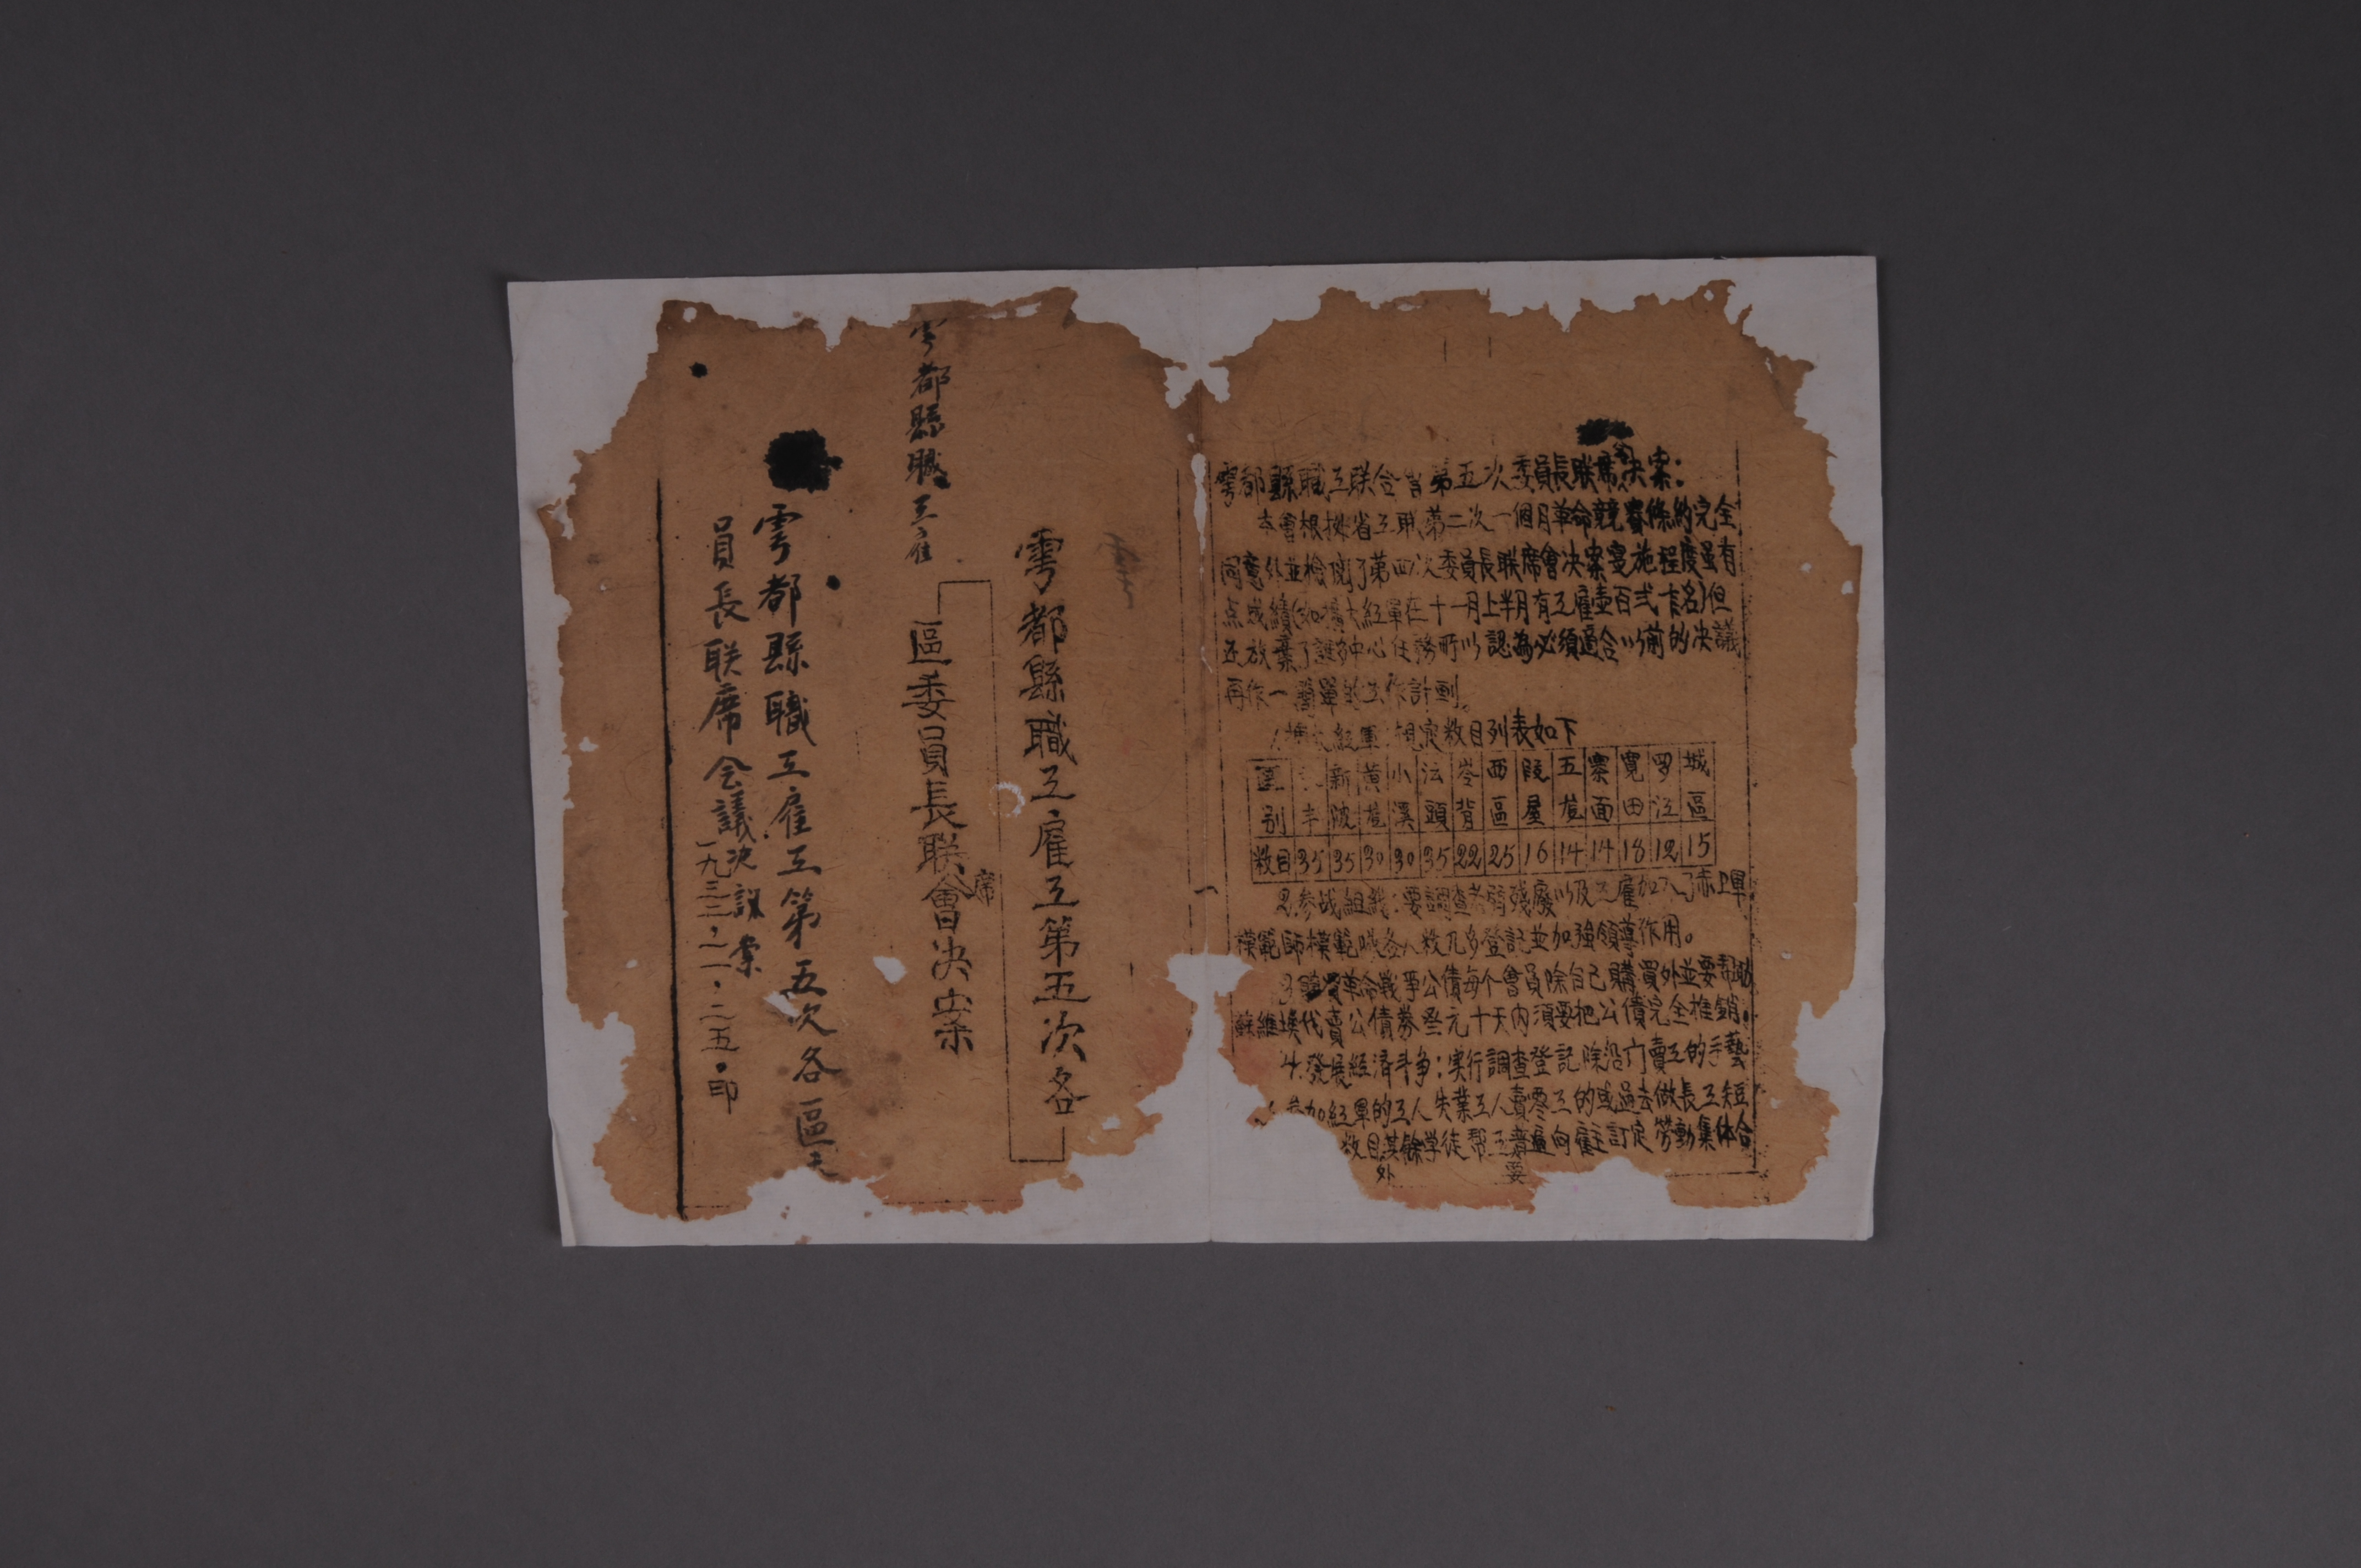 雩都縣職工雇工第五次各
區委員長联席會决案
雩都縣職工雇
雩都縣職工雇工第五次各區
員長联席会議决議案
一九三二·一一·二五·印
雩都縣職工联合会第五次委員長联席会决案：
本會根據省工联第二次一個月革命競賽條約完全
同意並檢閱了第四次委員長联席會决案寔施程度虽有
点成績(如擴大紅軍在十一月上半月有工雇壹百弍十名)但
还放棄了許多中心任務所以認為必須適合以前的决議
再作一簡單的工作計劃。
1.擴大紅軍：規定数目列表如下
區别 丰 新陂 黄龍 小溪 沄頭 岺背 西區 段屋 五龍 寨面 寬田 罗江 城區
数目 35 35 30 30 35 22 25 16 14 14 18 12 15
2.参战組織：要調查老弱残廢以及工雇加入了赤卫軍
模範師模範 人数几多登記並加強領導作用。
3. 革命戰爭公債每个會員除自己購買外並要帮助
蘇維埃代賣公債券 元十天内須要把公債完全推銷。
4.發展經济斗争：実行調查登記除沿门賣工的手藝
参加紅軍的工人失業工人賣零工的或過去做長工短
数目其餘学徒帮工 向雇主訂定勞動集体合
外
要